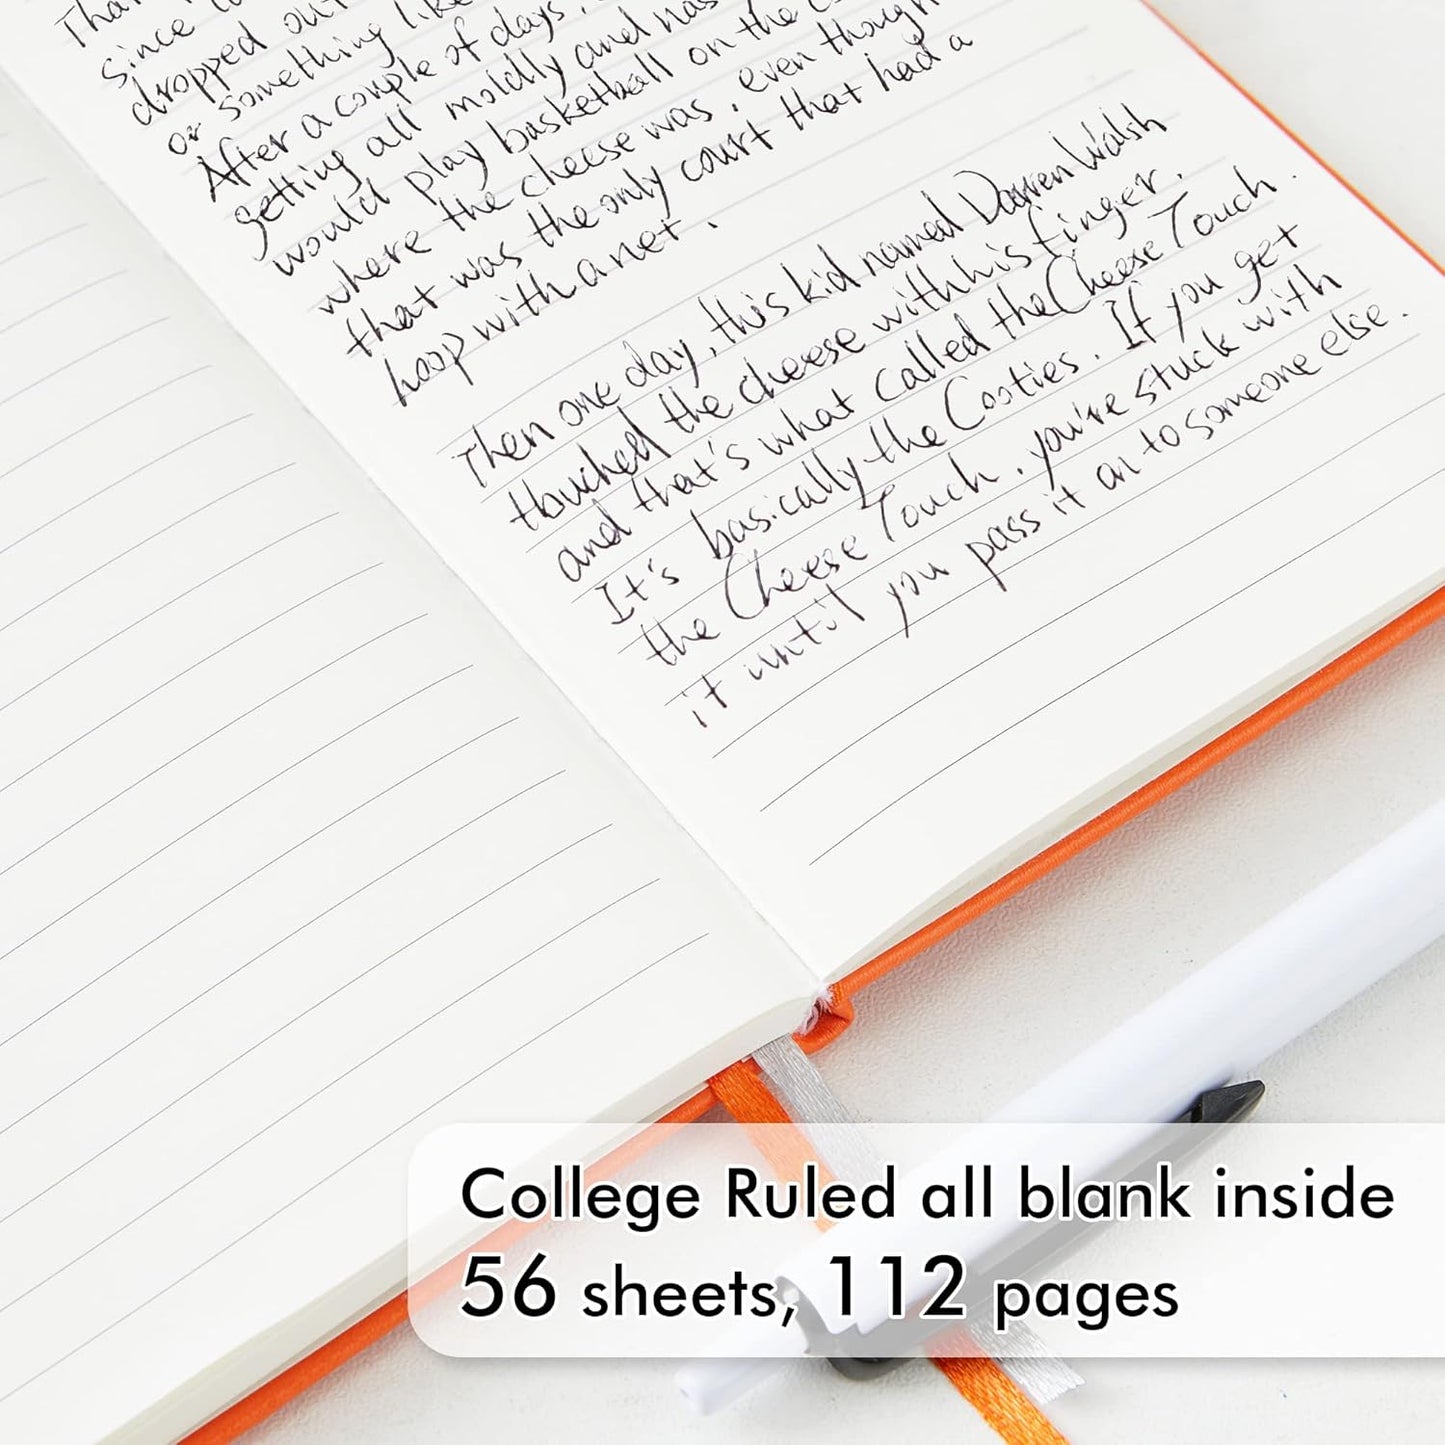 That
since
dropped out
or something like
After a couple of days,
getting all moldly and nas
would play basketball on the c
where the cheese was, even though
that was the only court that had a
hoop with a net.
Then one day, this kid named Darren Walsh
thuched the cheese with his finger.
and that's what called the Cheese Touch.
It's basically the Cooties. If you get
the Cheese Touch, you're stuck with
it until you pass it on to someone else.
College Ruled all blank inside
56 sheets, 112 pages